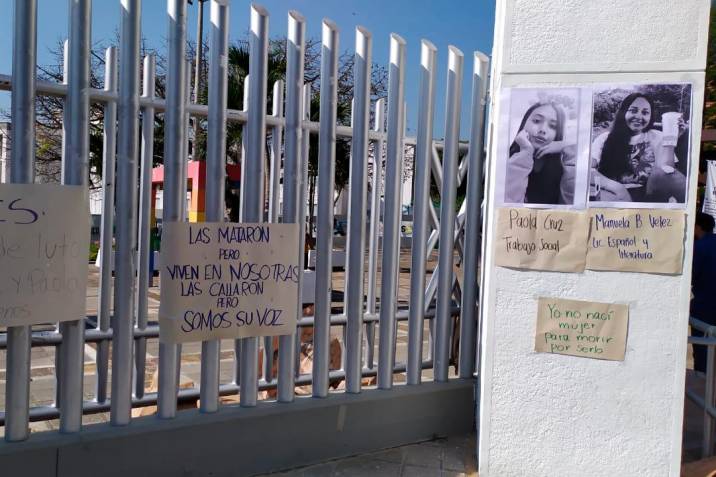 ES.
de luto
y Paola
enos
LAS MATARON
PERO
VIVEN EN NOSOTRAS
LAS CALLARON
PERO
SOMOS SU VOZ
Paola Cruz
Trabajo Social
Manuela B Velez
Lic. Español y
literatura
Yo no nací
mujer
para morir
por serlo